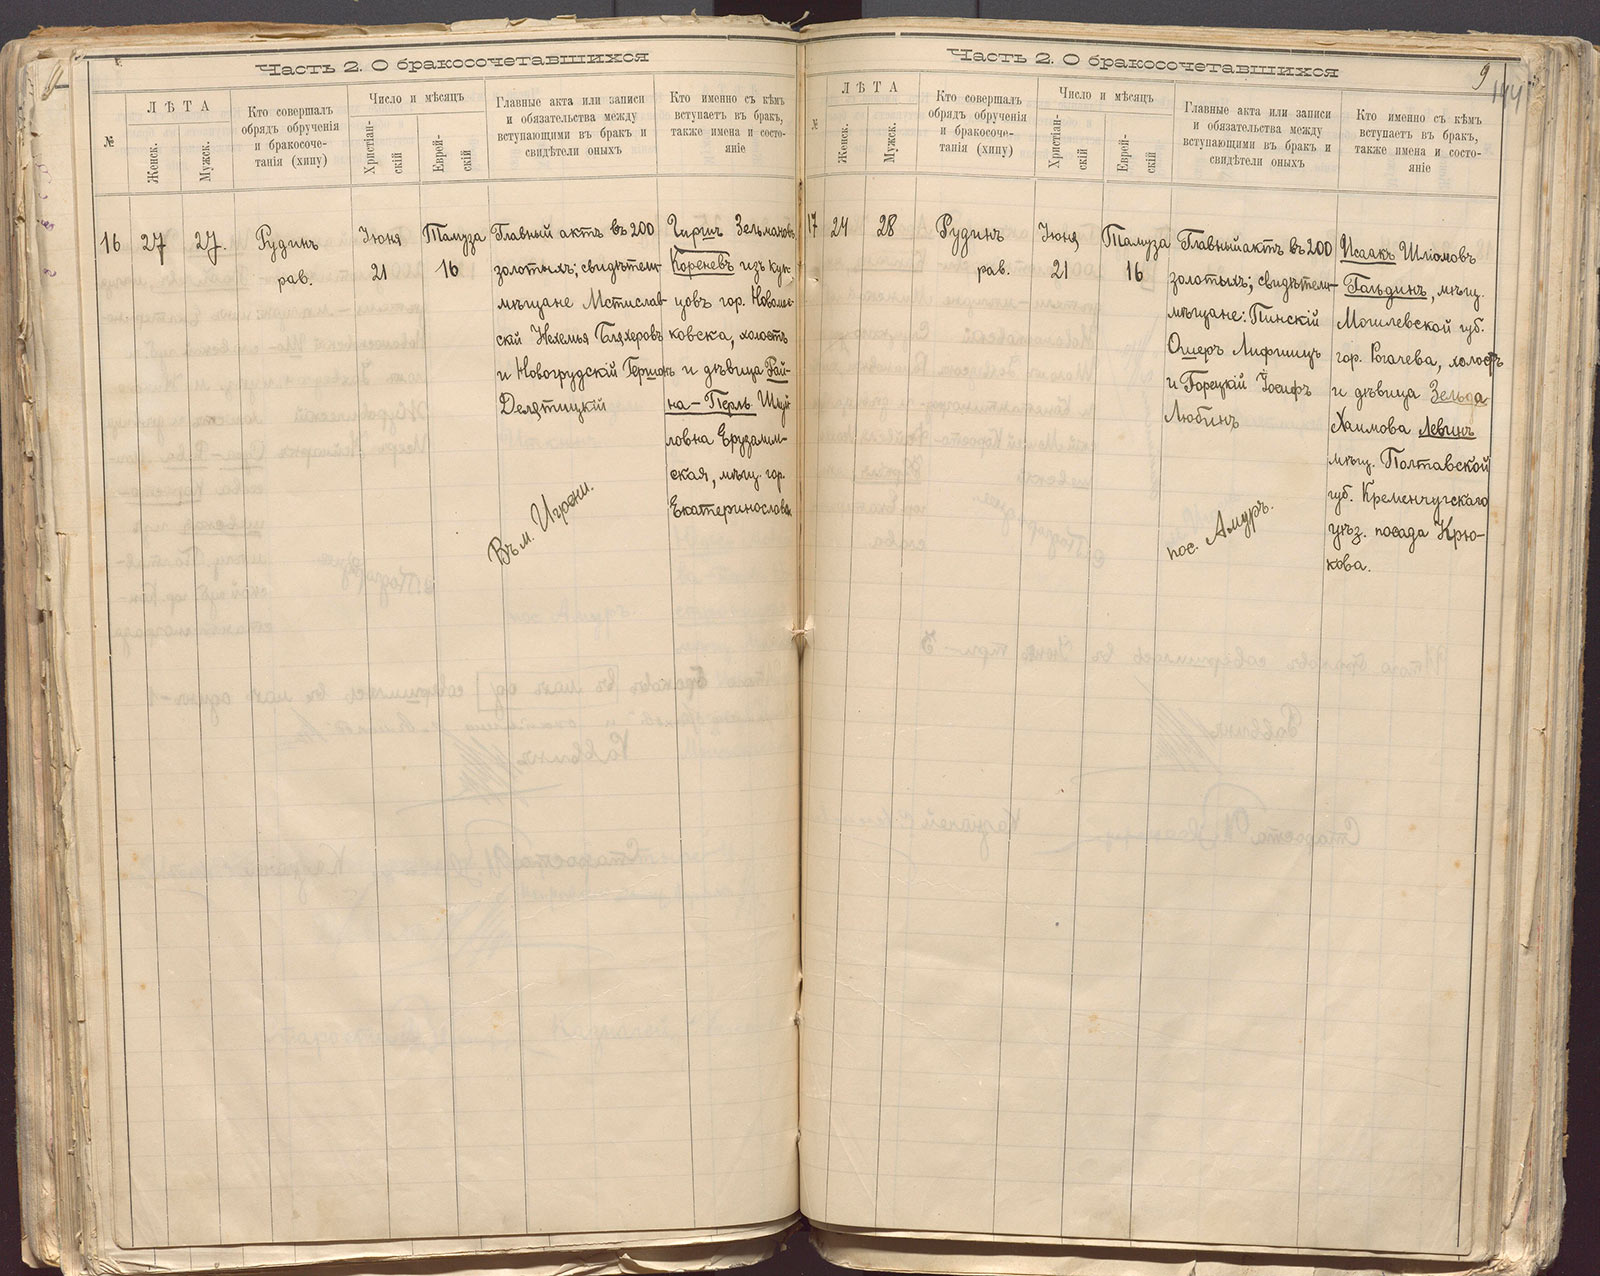 Часть 2. О бракосочетавшихся
№
ЛѢТА
Женск.
Мужск.
Кто совершалъ
обрядъ обрученія
и бракосоче-
танія (хипу)
Число и мѣсяцъ
Христіан-
скій
Еврей-
скій
Главные акта или записи
и обязательства между
вступающими въ бракъ и
свидѣтели оныхъ
Кто именно съ кѣмъ
вступаетъ въ бракъ,
также имена и состо-
яніе
16
27
27.
Рудинъ
рав.
Іюня
21
Тамуза
16
Главный актъ въ 200
золотыхъ; свидѣтели-
мѣщане Мстислав-
скій Нехемья Бляхеровъ
и Новогрудскій Гершонъ
Делятицкій
Въ м. Игрени.
Гиршъ Зельмановъ
Кореневъ изъ куп-
цовъ гор. Новомос-
ковска, холостъ
и дѣвица Рай-
на-Перль Шмуй-
ловна Ерузалим-
ская, мѣщ. гор.
Екатеринослава
Часть 2. О бракосочетавшихся
9
144
№
ЛѢТА
Женск.
Мужск.
Кто совершалъ
обрядъ обрученія
и бракосоче-
танія (хипу)
Число и мѣсяцъ
Христіан-
скій
Еврей-
скій
Главные акта или записи
и обязательства между
вступающими въ бракъ и
свидѣтели оныхъ
Кто именно съ кѣмъ
вступаетъ въ бракъ,
также имена и состо-
яніе
17
24
28
Рудинъ
рав.
Іюня
21
Тамуза
16
Главный актъ въ 200
золотыхъ; свидѣтели-
мѣщане: Пинскій
Ошеръ Лифшицъ
и Горецкій Іосифъ
Любинъ
пос. Амуръ.
Исаакъ Шліомовъ
Гольдинъ, мѣщ.
Могилевской губ.
гор. Рогачева, холостъ
и дѣвица Зельда
Хаимова Левинъ
мѣщ. Полтавской
губ. Кременчугскаго
уѣз. посада Крю-
кова.